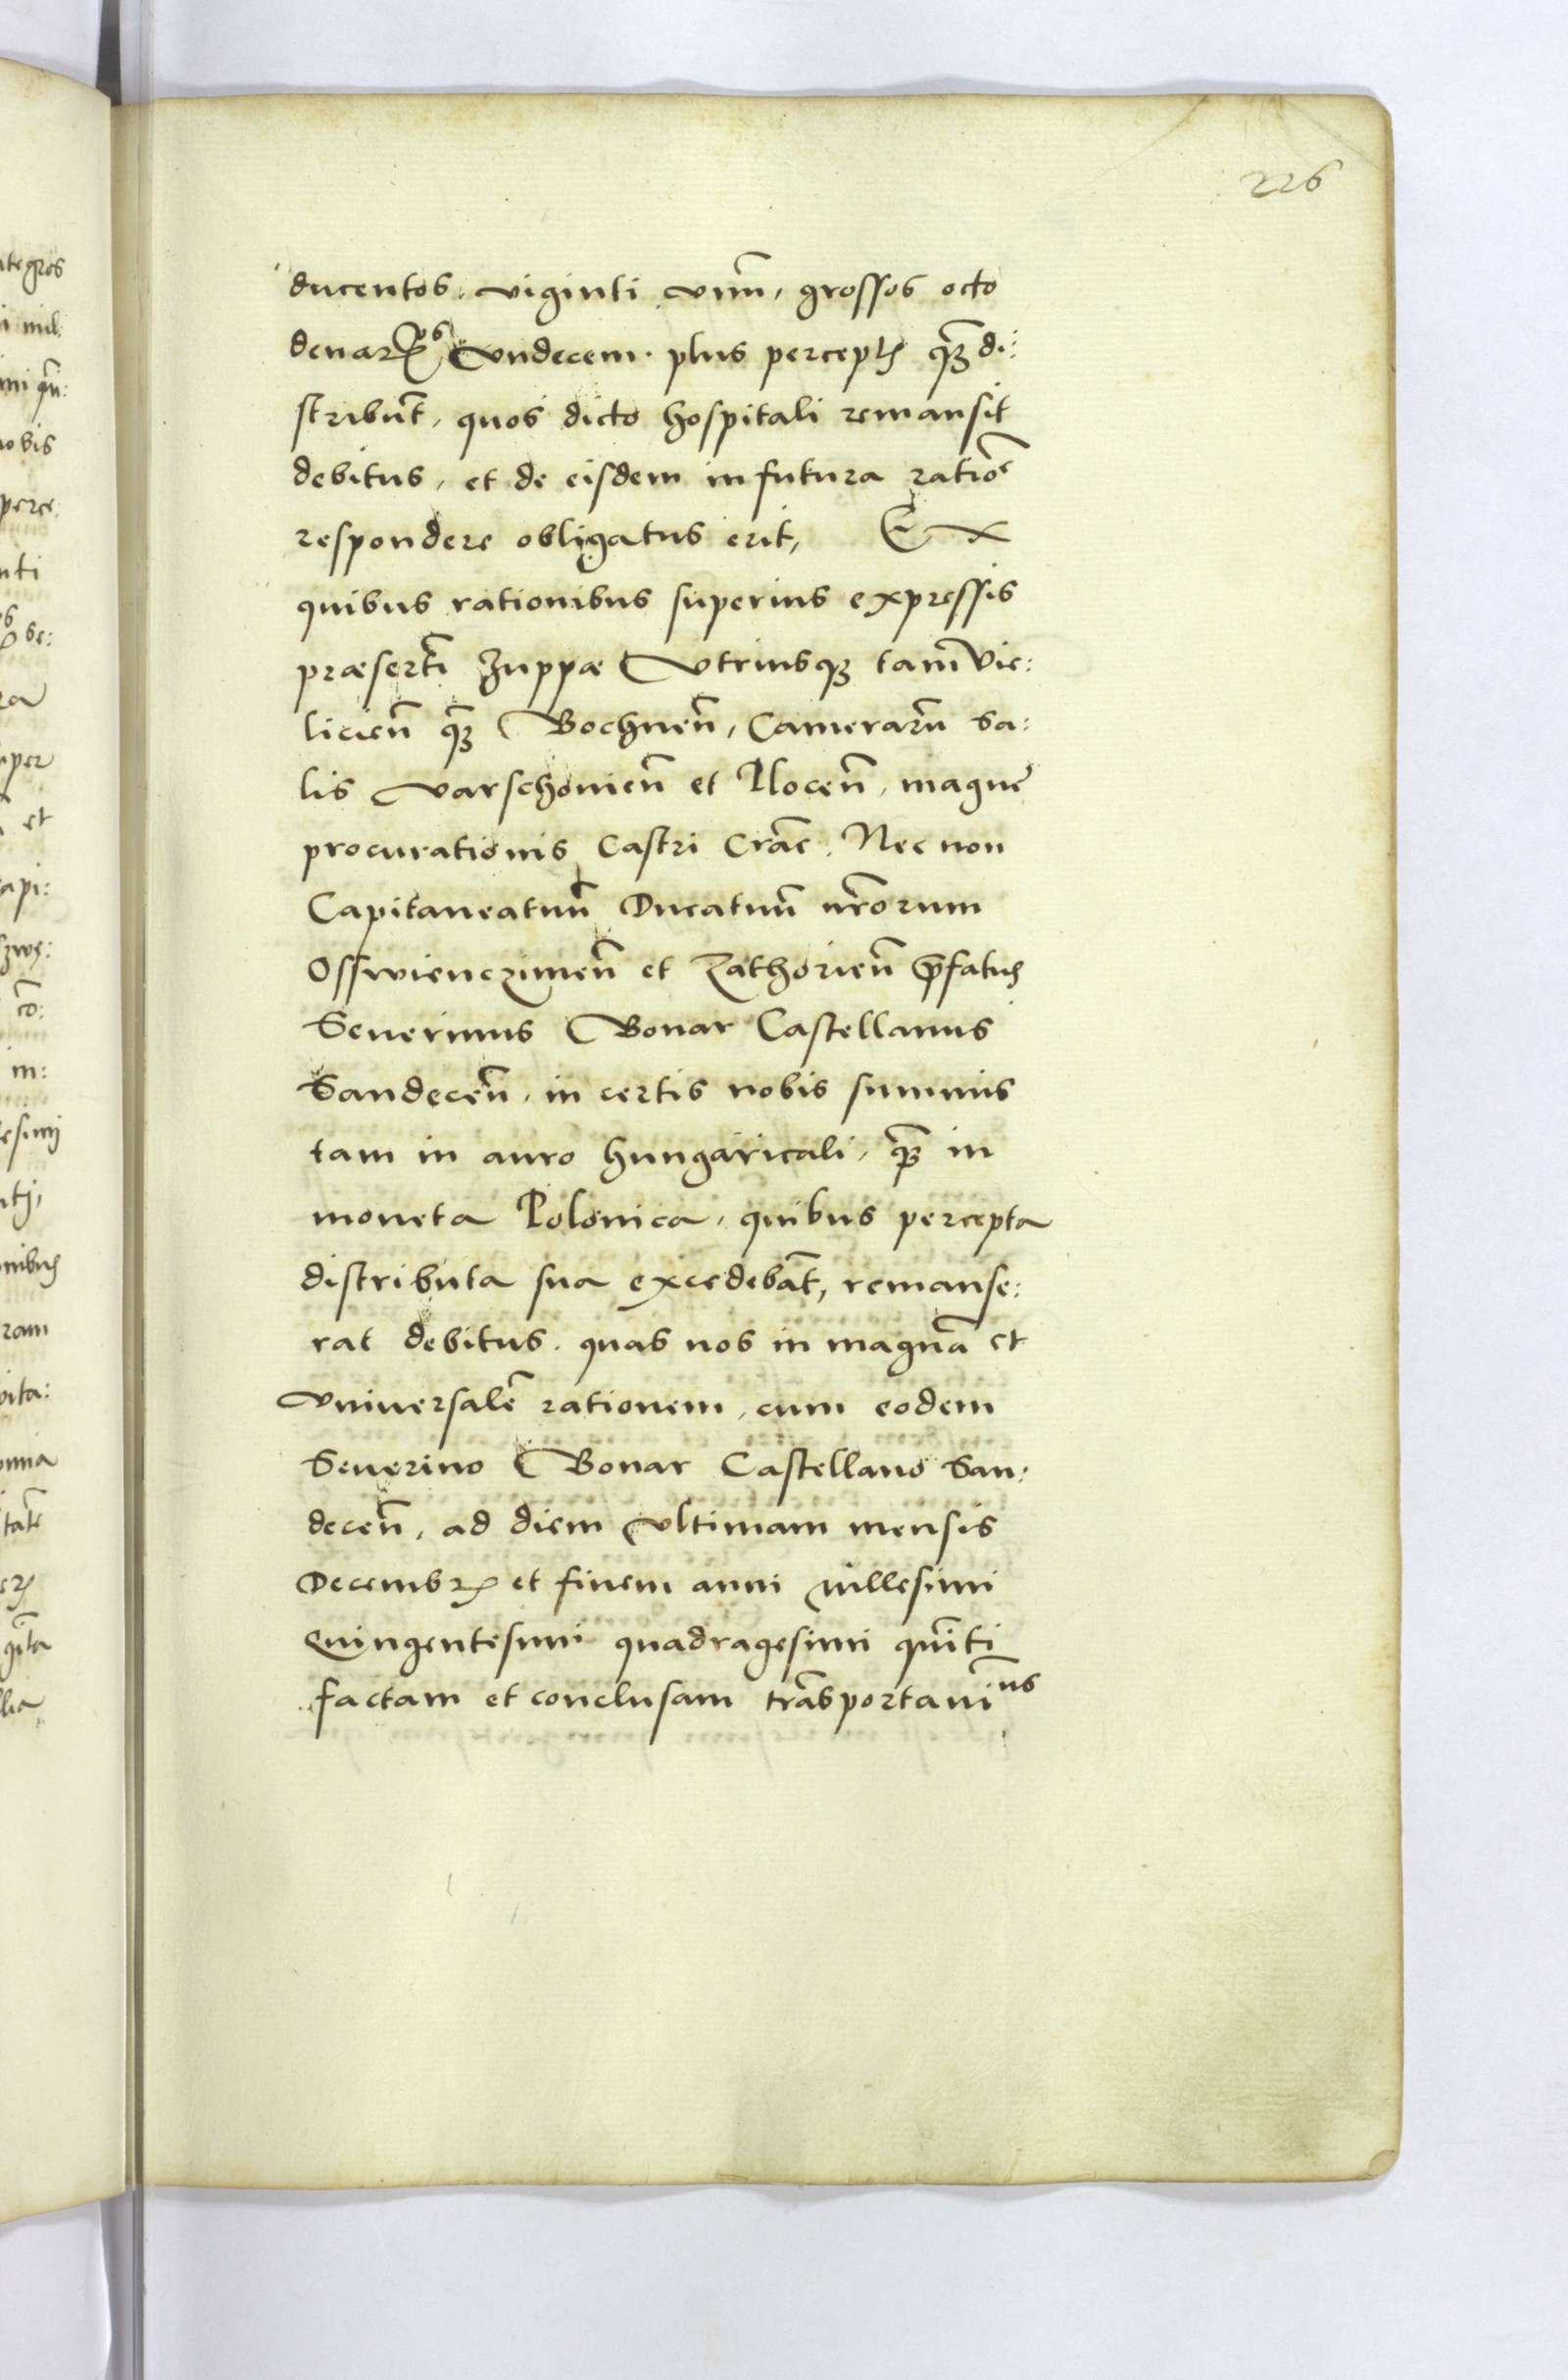 226
ducentos. viginti vnũ, grossos octo
denarꝭos Vndecem. plus perceptꝭ qꝫ̃ di:
stribuit, quos dicto hospitali remansit
debitus, et de eisdem in futura ratiõe
respondere obligatus erit, Ex
quibus rationibus superius expressis
præsertĩ Zuppæ Vtriusqꝫ tam̃ Vie:
licieñ qꝫ̃ Bochneñ, Camerarũ Sa:
lis Varschovieñ et Ploceñ, magnę
procurationis Castri Crac̃. Nec non
Capitaneatuũ Ducatuũ nr̃orum
Osswienczimeñ et Zathorieñ p̃fatꝰ
Severinus Bonar Castellanus
Sandeceñ, in certis nobis summis
tam in auro hungaricali, qꝫ̃ in
moneta Polonica, quibus percepta
distributa sua excedebãt, remanse:
rat debitus. quas nos in magnã et
Vniversalẽ rationem, cum eodem
Severino Bonar Castellano San:
deceñ, ad diem vltimam mensis
Decembrꝭ et finem anni Millesimi
Quingentesimi quadragesimi quĩti
factam et conclusam trãsportavimus